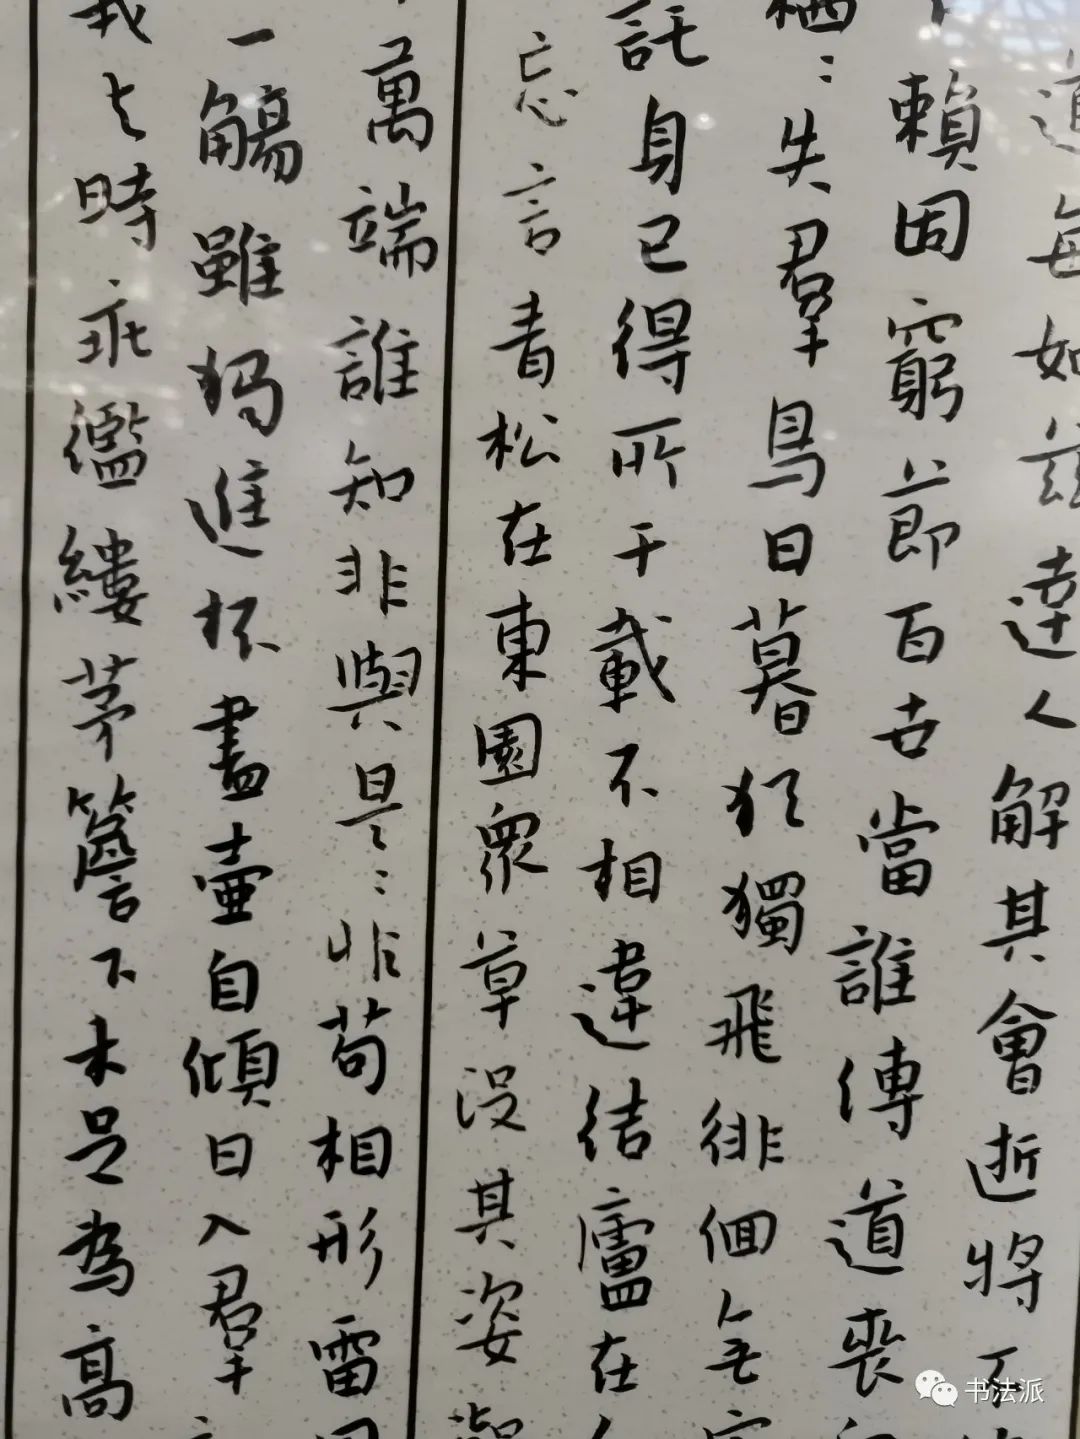 道每如茲達人解其會逝將不
賴固窮節百世當誰傳道喪
栖〻失羣鳥日暮猶獨飛徘徊無定
託身已得所千載不相違結廬在人
忘言青松在東園衆草没其姿凝
萬端誰知非與是〻非苟相形雷同
一觴雖獨進杯盡壺自傾日入羣
我之時乖襤縷茅簷下未足為高
书法派